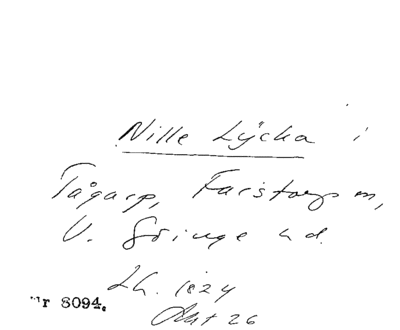 Nille Lÿcka i
Tågarp, Farstorps m,
V. Göinge hd.
Lh. 1824
Akt 26
Nr 8094.